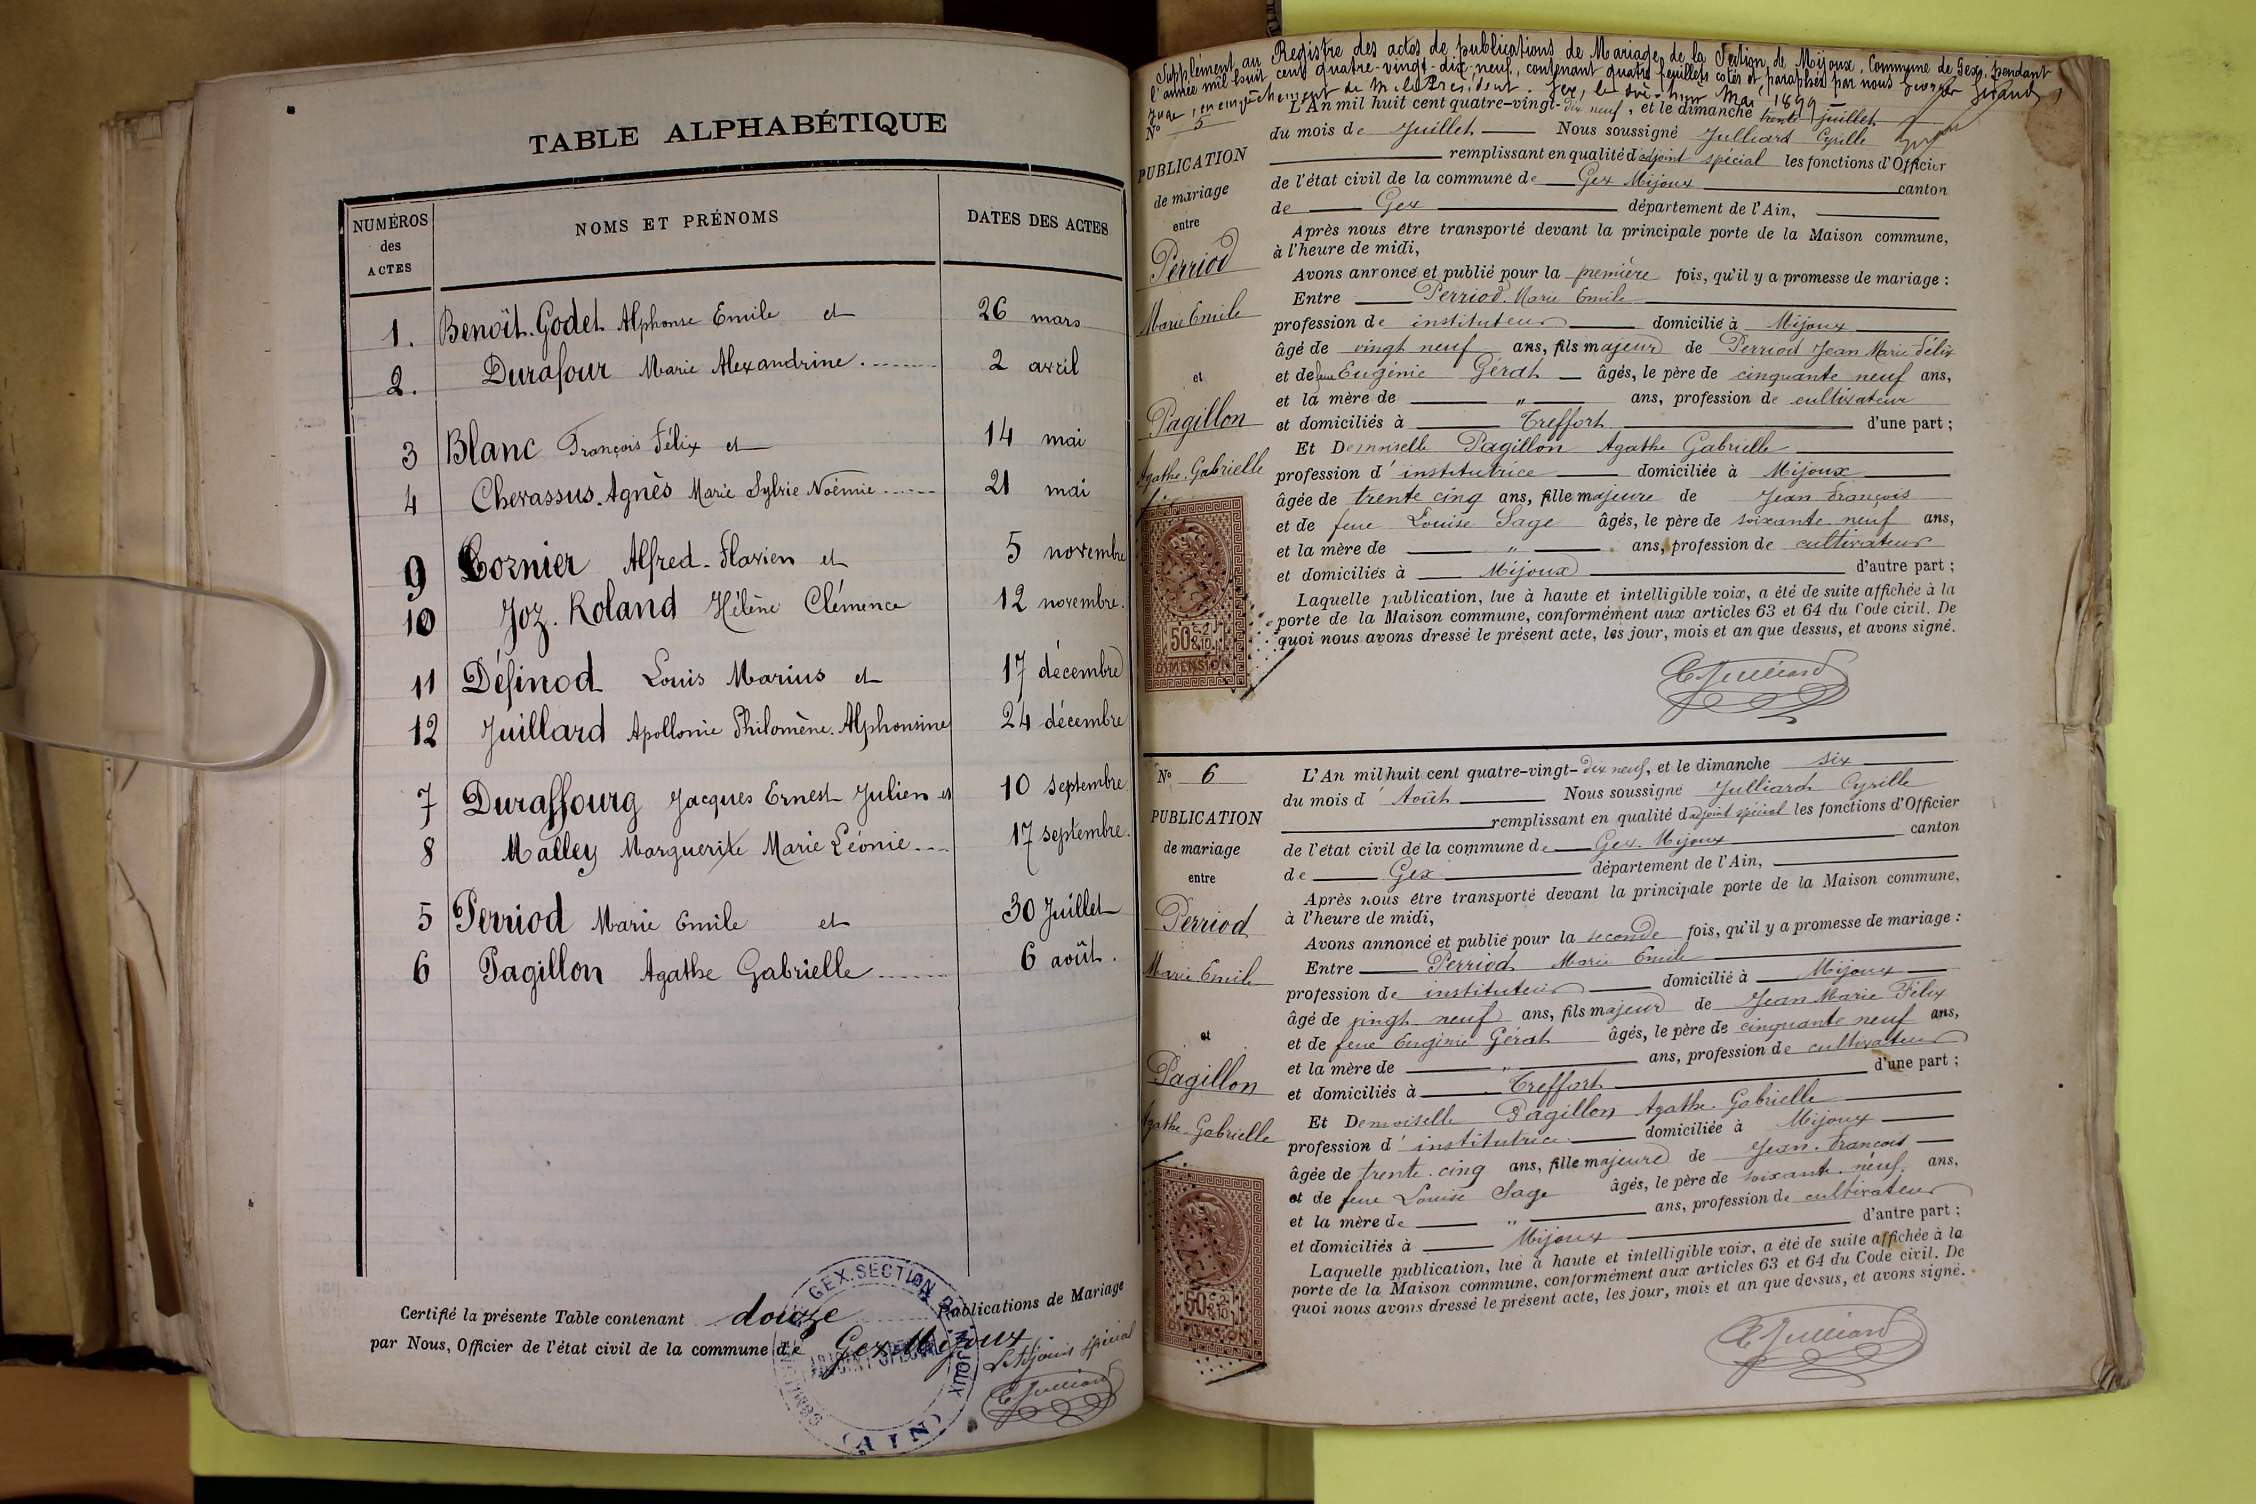 TABLE ALPHABÉTIQUE
NUMÉROS des ACTES
NOMS ET PRÉNOMS
DATES DES ACTES
1. Benoît-Godet Alphonse Emile et 26 mars
2. Durafour Marie Alexandrine 2 avril
3 Blanc François Félix et 14 mai
4 Chevassus-Agnès Marie Sylvie Noémie 21 mai
9 Cornier Alfred-Flavien et 5 novembre
10 Joz-Roland Hélène Clémence 12 novembre.
11 Définod Louis Marius et 17 décembre
12 Juillard Apollonie Philomène Alphonsine 24 décembre
7 Duraffourg Jacques Ernest Julien et 10 septembre
8 Malley Marguerite Marie Léonie 17 septembre.
5 Perriod Marie Emile et 30 Juillet
6 Pagillon Agathe Gabrielle 6 août.
Certifié la présente Table contenant douze Publications de Mariage
par Nous, Officier de l'état civil de la commune de Gex-Mijoux
L'Adjoint spécial
C. Julliard
GEX. SECTION DE MIJOUX
ADJOINT SPÉCIAL
(AIN)
Supplément au Registre des actes de publications de Mariage de la Section de Mijoux, Commune de Gex, pendant
l'année mil huit cent quatre-vingt-dix-neuf, contenant quatre feuillets cotés et paraphés par nous
Juge, en empêchement de M. le Président. Gex, le dix-huit Mai 1899
N° 5
L'An mil huit cent quatre-vingt-dix neuf, et le dimanche trente juillet
du mois de Juillet Nous soussigné Julliard Cyrille
remplissant en qualité d'adjoint spécial les fonctions d'Officier
de l'état civil de la commune de Gex Mijoux canton
de Gex département de l'Ain,
Après nous être transporté devant la principale porte de la Maison commune,
à l'heure de midi,
Avons annoncé et publié pour la première fois, qu'il y a promesse de mariage :
Entre Perriod Marie Emile
profession de instituteur domicilié à Mijoux
âgé de vingt neuf ans, fils majeur de Perriod Jean Marie Félix
et de feue Eugénie Gérat âgés, le père de cinquante neuf ans,
et la mère de " ans, profession de cultivateur
et domiciliés à Treffort d'une part ;
Et Demoiselle Pagillon Agathe Gabrielle
profession d'institutrice domiciliée à Mijoux
âgée de trente cinq ans, fille majeure de Jean François
et de feue Louise Sage âgés, le père de soixante neuf ans,
et la mère de " ans, profession de cultivateur
et domiciliés à Mijoux d'autre part ;
Laquelle publication, lue à haute et intelligible voix, a été de suite affichée à la
porte de la Maison commune, conformément aux articles 63 et 64 du Code civil. De
quoi nous avons dressé le présent acte, les jour, mois et an que dessus, et avons signé.
C. Julliard
PUBLICATION
de mariage
entre
Perriod
Marie Emile
et
Pagillon
Agathe-Gabrielle
50c
DIMENSION
N° 6
L'An mil huit cent quatre-vingt-dix neuf, et le dimanche six
du mois d'Août Nous soussigné Julliard Cyrille
remplissant en qualité d'adjoint spécial les fonctions d'Officier
de l'état civil de la commune de Gex. Mijoux canton
de Gex département de l'Ain,
Après nous être transporté devant la principale porte de la Maison commune,
à l'heure de midi,
Avons annoncé et publié pour la seconde fois, qu'il y a promesse de mariage :
Entre Perriod Marie Emile
profession de instituteur domicilié à Mijoux
âgé de vingt neuf ans, fils majeur de Jean Marie Félix
et de feue Eugénie Gérat âgés, le père de cinquante neuf ans,
et la mère de " ans, profession de cultivateur
et domiciliés à Treffort d'une part ;
Et Demoiselle Pagillon Agathe Gabrielle
profession d'institutrice domiciliée à Mijoux
âgée de trente cinq ans, fille majeure de Jean-François
et de feue Louise Sage âgés, le père de soixante neuf ans,
et la mère de " ans, profession de cultivateur
et domiciliés à Mijoux d'autre part ;
Laquelle publication, lue à haute et intelligible voix, a été de suite affichée à la
porte de la Maison commune, conformément aux articles 63 et 64 du Code civil. De
quoi nous avons dressé le présent acte, les jour, mois et an que dessus, et avons signé.
C. Julliard
PUBLICATION
de mariage
entre
Perriod
Marie Emile
et
Pagillon
Agathe-Gabrielle
50c
DIMENSION